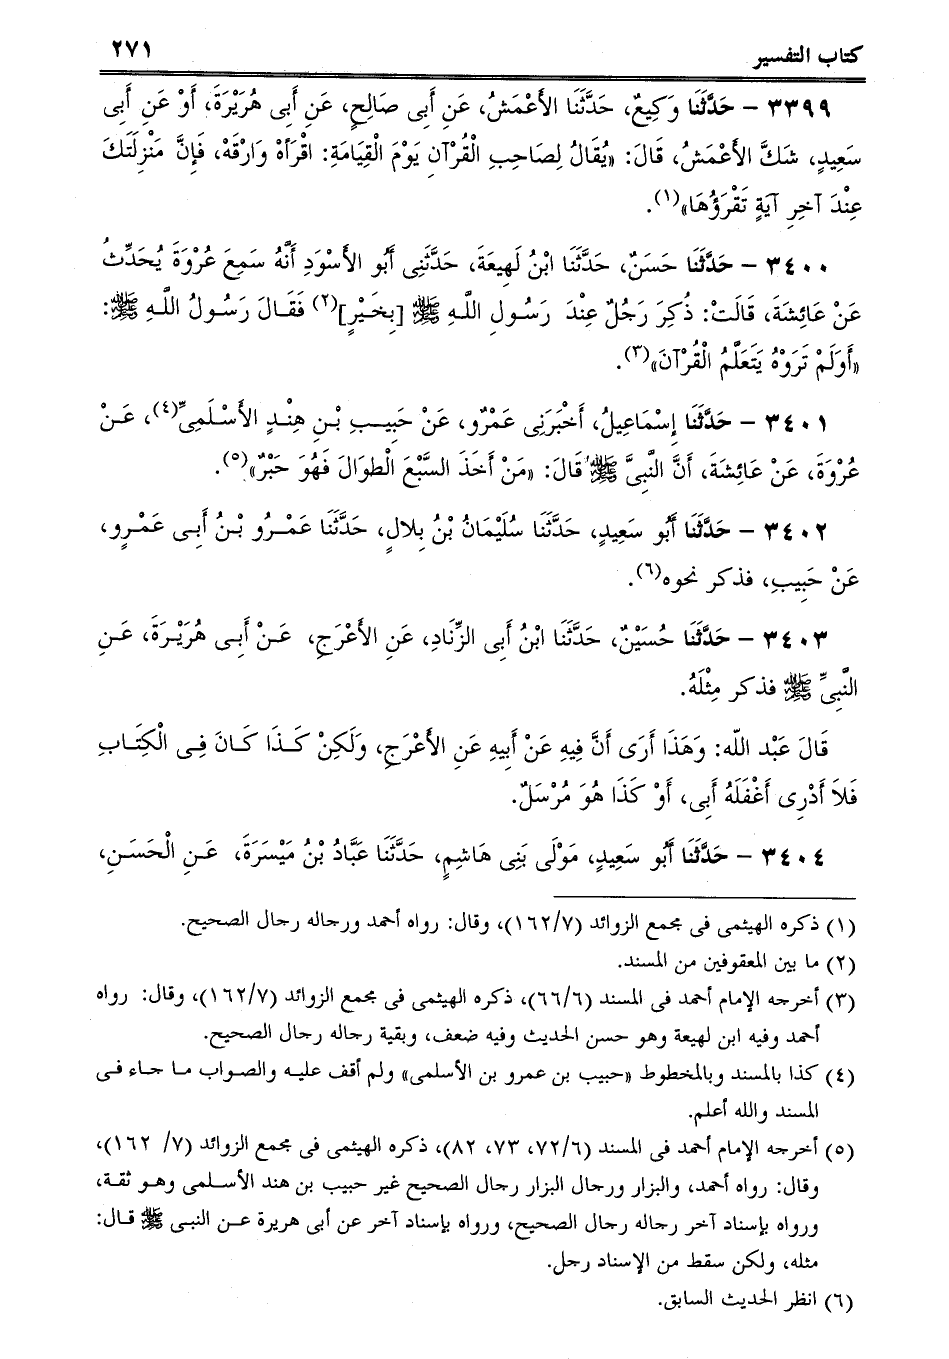 كتاب التفسير ٢٧١
٣٣٩٩ - حَدَّثَنَا وَكِيعٌ، حَدَّثَنَا الأَعْمَشُ، عَن أَبِى صَالِحٍ، عَن أَبِى هُرَيْرَةَ، أَوْ عَن أَبِى
سَعِيدٍ، شَكَّ الأَعْمَشُ، قَالَ: «يُقَالُ لِصَاحِبِ الْقُرْآنِ يَوْمَ الْقِيَامَةِ: اقْرَأهْ وَارْقَهْ، فَإِنَّ مَنْزِلَتَكَ
عِنْدَ آخِرِ آيَةٍ تَقْرَؤُهَا»(١).
٣٤٠٠ - حَدَّثَنَا حَسَنٌ، حَدَّثَنَا ابْنُ لَهِيعَةَ، حَدَّثَنِى أَبُو الأَسْوَدِ أَنَّهُ سَمِعَ عُرْوَةَ يُحَدِّثُ
عَنْ عَائِشَةَ، قَالَتْ: ذُكِرَ رَجُلٌ عِنْدَ رَسُولِ اللَّهِ ﷺ [بِخَيْرٍ](٢) فَقَالَ رَسُولُ اللَّهِ ﷺ:
«أَوَلَمْ تَرَوْهُ يَتَعَلَّمُ الْقُرْآنَ»(٣).
٣٤٠١ - حَدَّثَنَا إِسْمَاعِيلُ، أَخْبَرَنِى عَمْرٌو، عَنْ حَبِيبِ بْنِ هِنْدٍ الأَسْلَمِىِّ(٤)، عَنْ
عُرْوَةَ، عَنْ عَائِشَةَ، أَنَّ النَّبِىَّ ﷺ قَالَ: «مَنْ أَخَذَ السَّبْعَ الْطوَالَ فَهُوَ حَبْرٌ»(٥).
٣٤٠٢ - حَدَّثَنَا أَبُو سَعِيدٍ، حَدَّثَنَا سُلَيْمَانُ بْنُ بِلالٍ، حَدَّثَنَا عَمْرُو بْنُ أَبِى عَمْرٍو،
عَنْ حَبِيبٍ، فذكر نحوه(٦).
٣٤٠٣ - حَدَّثَنَا حُسَيْنٌ، حَدَّثَنَا ابْنُ أَبِى الزِّنَادِ، عَنِ الأَعْرَجِ، عَنْ أَبِى هُرَيْرَةَ، عَنِ
النَّبِىِّ ﷺ فذكر مِثْلَهُ.
قَالَ عَبْد اللَّه: وَهَذَا أَرَى أَنَّ فِيهِ عَنْ أَبِيهِ عَنِ الأَعْرَجِ، وَلَكِنْ كَذَا كَانَ فِى الْكِتَابِ
فَلاَ أَدْرِى أَغْفَلَهُ أَبِى، أَوْ كَذَا هُوَ مُرْسَلٌ.
٣٤٠٤ - حَدَّثَنَا أَبُو سَعِيدٍ، مَوْلَى بَنِى هَاشِمٍ، حَدَّثَنَا عَبَّادُ بْنُ مَيْسَرَةَ، عَنِ الْحَسَنِ،
(١) ذكره الهيثمى فى مجمع الزوائد (١٦٢/٧)، وقال: رواه أحمد ورجاله رجال الصحيح.
(٢) ما بين المعقوفين من المسند.
(٣) أخرجه الإمام أحمد فى المسند (٦٦/٦)، ذكره الهيثمى فى مجمع الزوائد (١٦٢/٧)، وقال: رواه
أحمد وفيه ابن لهيعة وهو حسن الحديث وفيه ضعف، وبقية رجاله رجال الصحيح.
(٤) كذا بالمسند وبالمخطوط «حبيب بن عمرو بن الأسلمى» ولم أقف عليه والصواب ما جاء فى
المسند والله أعلم.
(٥) أخرجه الإمام أحمد فى المسند (٧٢/٦، ٧٣، ٨٢)، ذكره الهيثمى فى مجمع الزوائد (٧/ ١٦٢)،
وقال: رواه أحمد، والبزار ورجال البزار رجال الصحيح غير حبيب بن هند الأسلمى وهو ثقة،
ورواه بإسناد آخر رجاله رجال الصحيح، ورواه بإسناد آخر عن أبى هريرة عن النبى ﷺ قال:
مثله، ولكن سقط من الإسناد رجل.
(٦) انظر الحديث السابق.